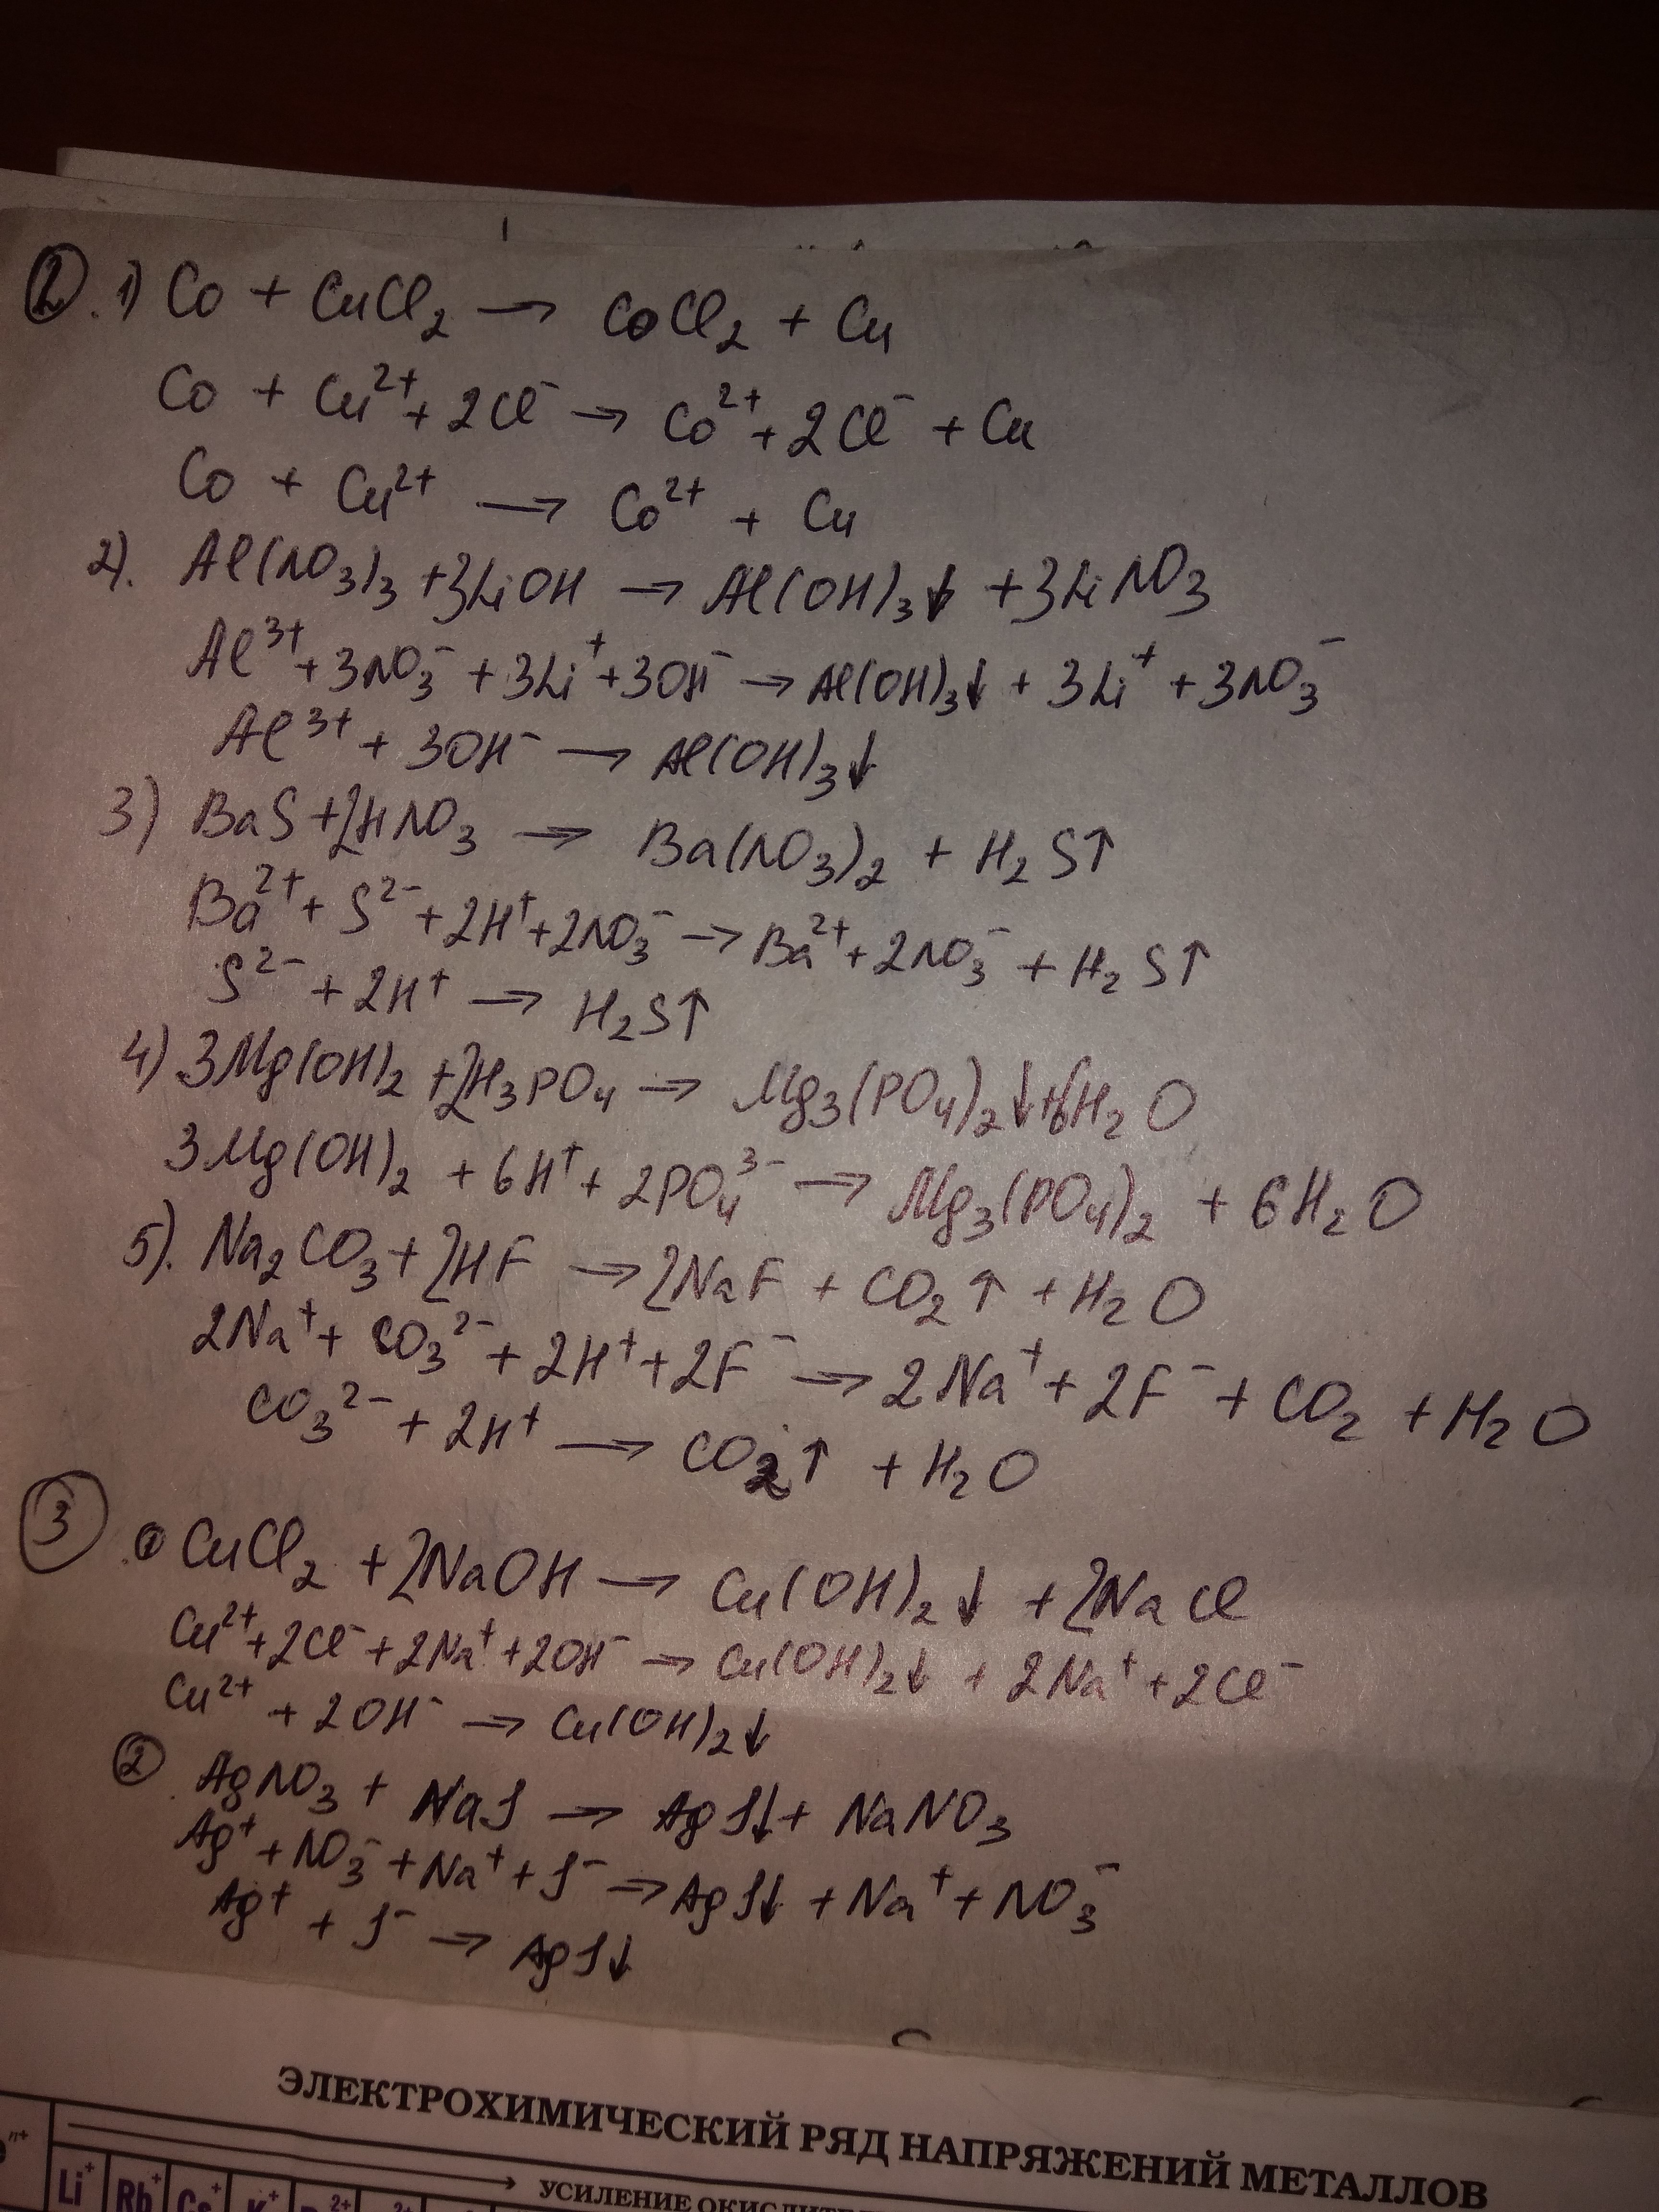 ②. 1) Co + CuCl₂ → CoCl₂ + Cu
Co + Cu²⁺ + 2Cl⁻ → Co²⁺ + 2Cl⁻ + Cu
Co + Cu²⁺ → Co²⁺ + Cu
2). Al(NO₃)₃ + 3LiOH → Al(OH)₃↓ + 3LiNO₃
Al³⁺ + 3NO₃⁻ + 3Li⁺ + 3OH⁻ → Al(OH)₃↓ + 3Li⁺ + 3NO₃⁻
Al³⁺ + 3OH⁻ → Al(OH)₃↓
3) BaS + 2HNO₃ → Ba(NO₃)₂ + H₂S↑
Ba²⁺ + S²⁻ + 2H⁺ + 2NO₃⁻ → Ba²⁺ + 2NO₃⁻ + H₂S↑
S²⁻ + 2H⁺ → H₂S↑
4) 3Mg(OH)₂ + 2H₃PO₄ → Mg₃(PO₄)₂↓ + 6H₂O
3Mg(OH)₂ + 6H⁺ + 2PO₄³⁻ → Mg₃(PO₄)₂ + 6H₂O
5). Na₂CO₃ + 2HF → 2NaF + CO₂↑ + H₂O
2Na⁺ + CO₃²⁻ + 2H⁺ + 2F⁻ → 2Na⁺ + 2F⁻ + CO₂ + H₂O
CO₃²⁻ + 2H⁺ → CO₂↑ + H₂O
③ . ① CuCl₂ + 2NaOH → Cu(OH)₂↓ + 2NaCl
Cu²⁺ + 2Cl⁻ + 2Na⁺ + 2OH⁻ → Cu(OH)₂↓ + 2Na⁺ + 2Cl⁻
Cu²⁺ + 2OH⁻ → Cu(OH)₂↓
② AgNO₃ + NaJ → AgJ↓ + NaNO₃
Ag⁺ + NO₃⁻ + Na⁺ + J⁻ → AgJ↓ + Na⁺ + NO₃⁻
Ag⁺ + J⁻ → AgJ↓
ЭЛЕКТРОХИМИЧЕСКИЙ РЯД НАПРЯЖЕНИЙ МЕТАЛЛОВ
n+
УСИЛЕНИЕ
Li⁺ Rb⁺ Cs⁺ K⁺